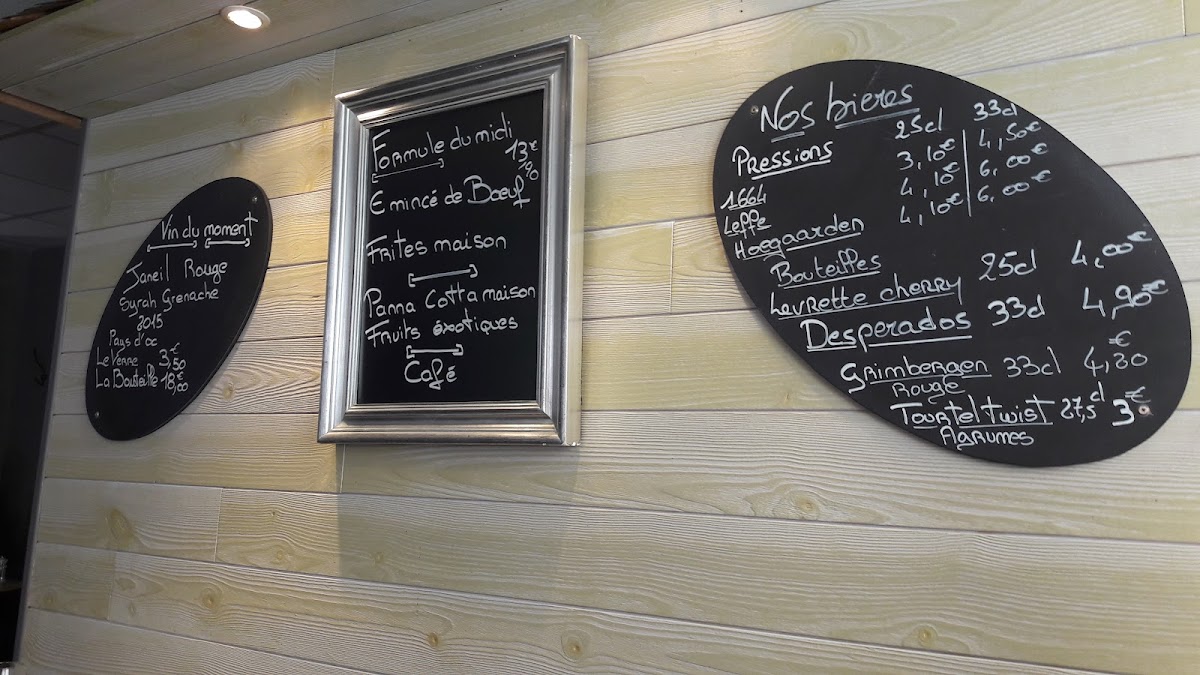 Vin du moment
Janeil Rouge
Syrah Grenache
2015
Pays d'oc
Le Verre 3,50€
La Bouteille 18,00€
Formule du midi
13€,90
Emincé de Bœuf
Frites maison
Panna Cotta maison
Fruits éxotiques
Café
Nos bieres
25cl 33cl
Pressions
1664 3,10€ 4,50€
Leffe 4,10€ 6,00€
Hoegaarden 4,10€ 6,00€
Bouteilles
Levrette cherry 25cl 4,00€
Desperados 33cl 4,90€
Grimbergen 33cl 4,20€
Rouge
Tourtel twist 27,5cl 3€
Agrumes